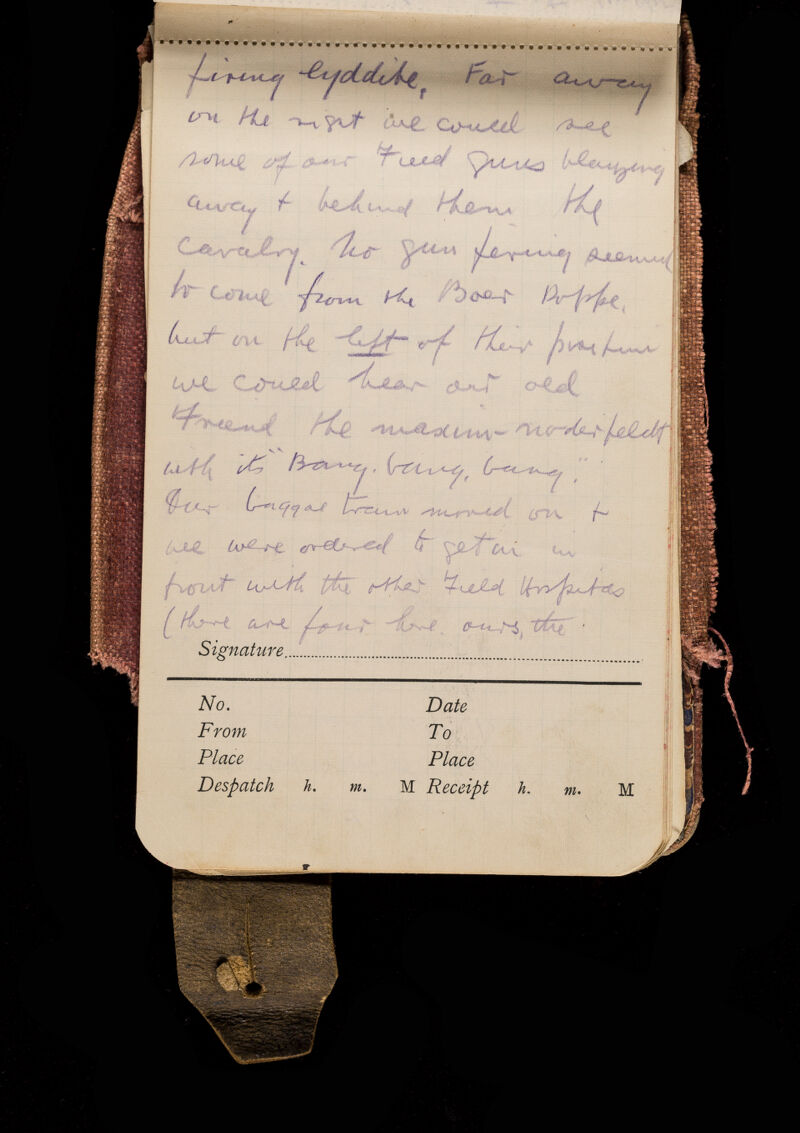 firing lyddite, Far away
on the right we could see
some of our Field guns blazing
away + behind them the
cavalry. No gun firing seemed
to come from the Boer
but on the left of their position
we could hear our old
Friend the maxim-nordenfeldt
with its "Bang. bang, bang."
Our baggae train moved on +
we were ordered to get on in
front with the other Field Hospitals
(there are four here. ours, the
Signature
No. Date
From To
Place Place
Despatch h. m. M Receipt h. m. M